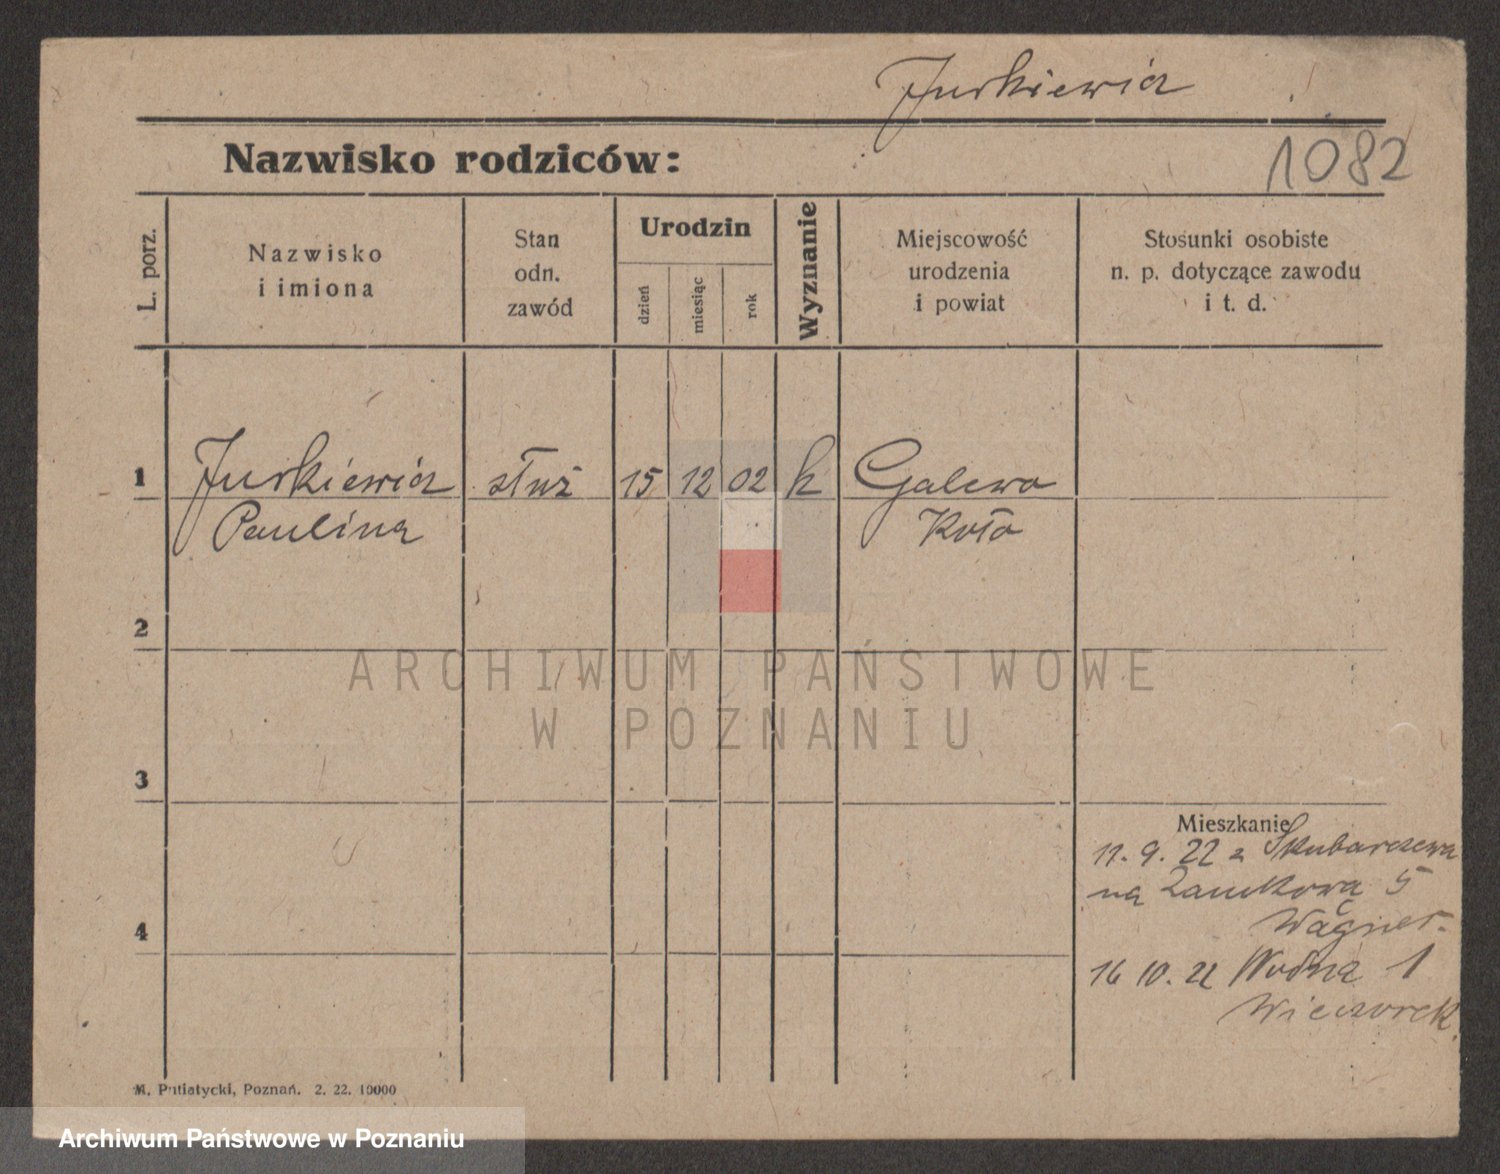 Jurkiewicz
1082
Nazwisko rodziców:
L. porz.
Nazwisko
i imiona
Stan
odn.
zawód
Urodzin
dzień
miesiąc
rok
Wyznanie
Miejscowość
urodzenia
i powiat
Stosunki osobiste
n. p. dotyczące zawodu
i t. d.
1 Jurkiewicz służ 15 12 02 k Galewo
Paulina Koło
2
ARCHIWUM PAŃSTWOWE
W POZNANIU
3
Mieszkanie
11. 9. 22 z Skubarczewa
na Zamkowa 5
Wagner.
4
16 10. 22 Wodna 1
Wieczorek
M. Putiatycki, Poznań. 2. 22. 10000
Archiwum Państwowe w Poznaniu